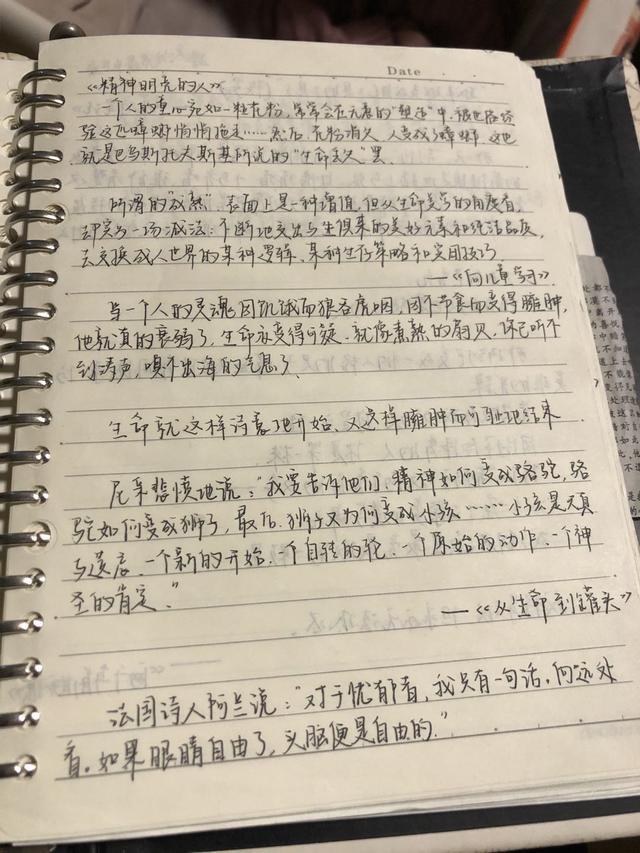 Date
《精神明亮的人》
一个人的童心宛如一粒花粉，常常会在无意的"塑造"中，被世俗经
验这匹蟑螂悄悄拖走……然后，花粉消失，人变成了蟑螂。这也
就是巴乌斯托夫斯基所说的"生命丢失"罢。
所谓的"成熟"，表面上是一种增值，但从生命美学的角度看，
却实为一场减法：不断地交出与生俱来的美好元素和纯洁品质，
去交换成人世界的某种逻辑、某种生存策略和实用技巧。
——《向儿童学习》
当一个人的灵魂因饥饿而狼吞虎咽，因不节食而变得臃肿，
他就真的衰弱了，生命亦变得可疑、就像煮熟的扇贝，你已听不
到涛声，嗅不出海的气息了。
生命就这样诗意地开始、又这样臃肿而可耻地结束
尼采悲愤地说："我要告诉他们，精神如何变成骆驼，骆
驼如何变成狮子，最后，狮子又为何变成小孩……小孩是天真
与遗忘、一个新的开始、一个自转的轮、一个原始的动作、一个神
圣的肯定。"
——《从生命到罐头》
法国诗人阿兰说："对于忧郁者，我只有一句话，向远处
看。如果眼睛自由了，头脑便是自由的。"